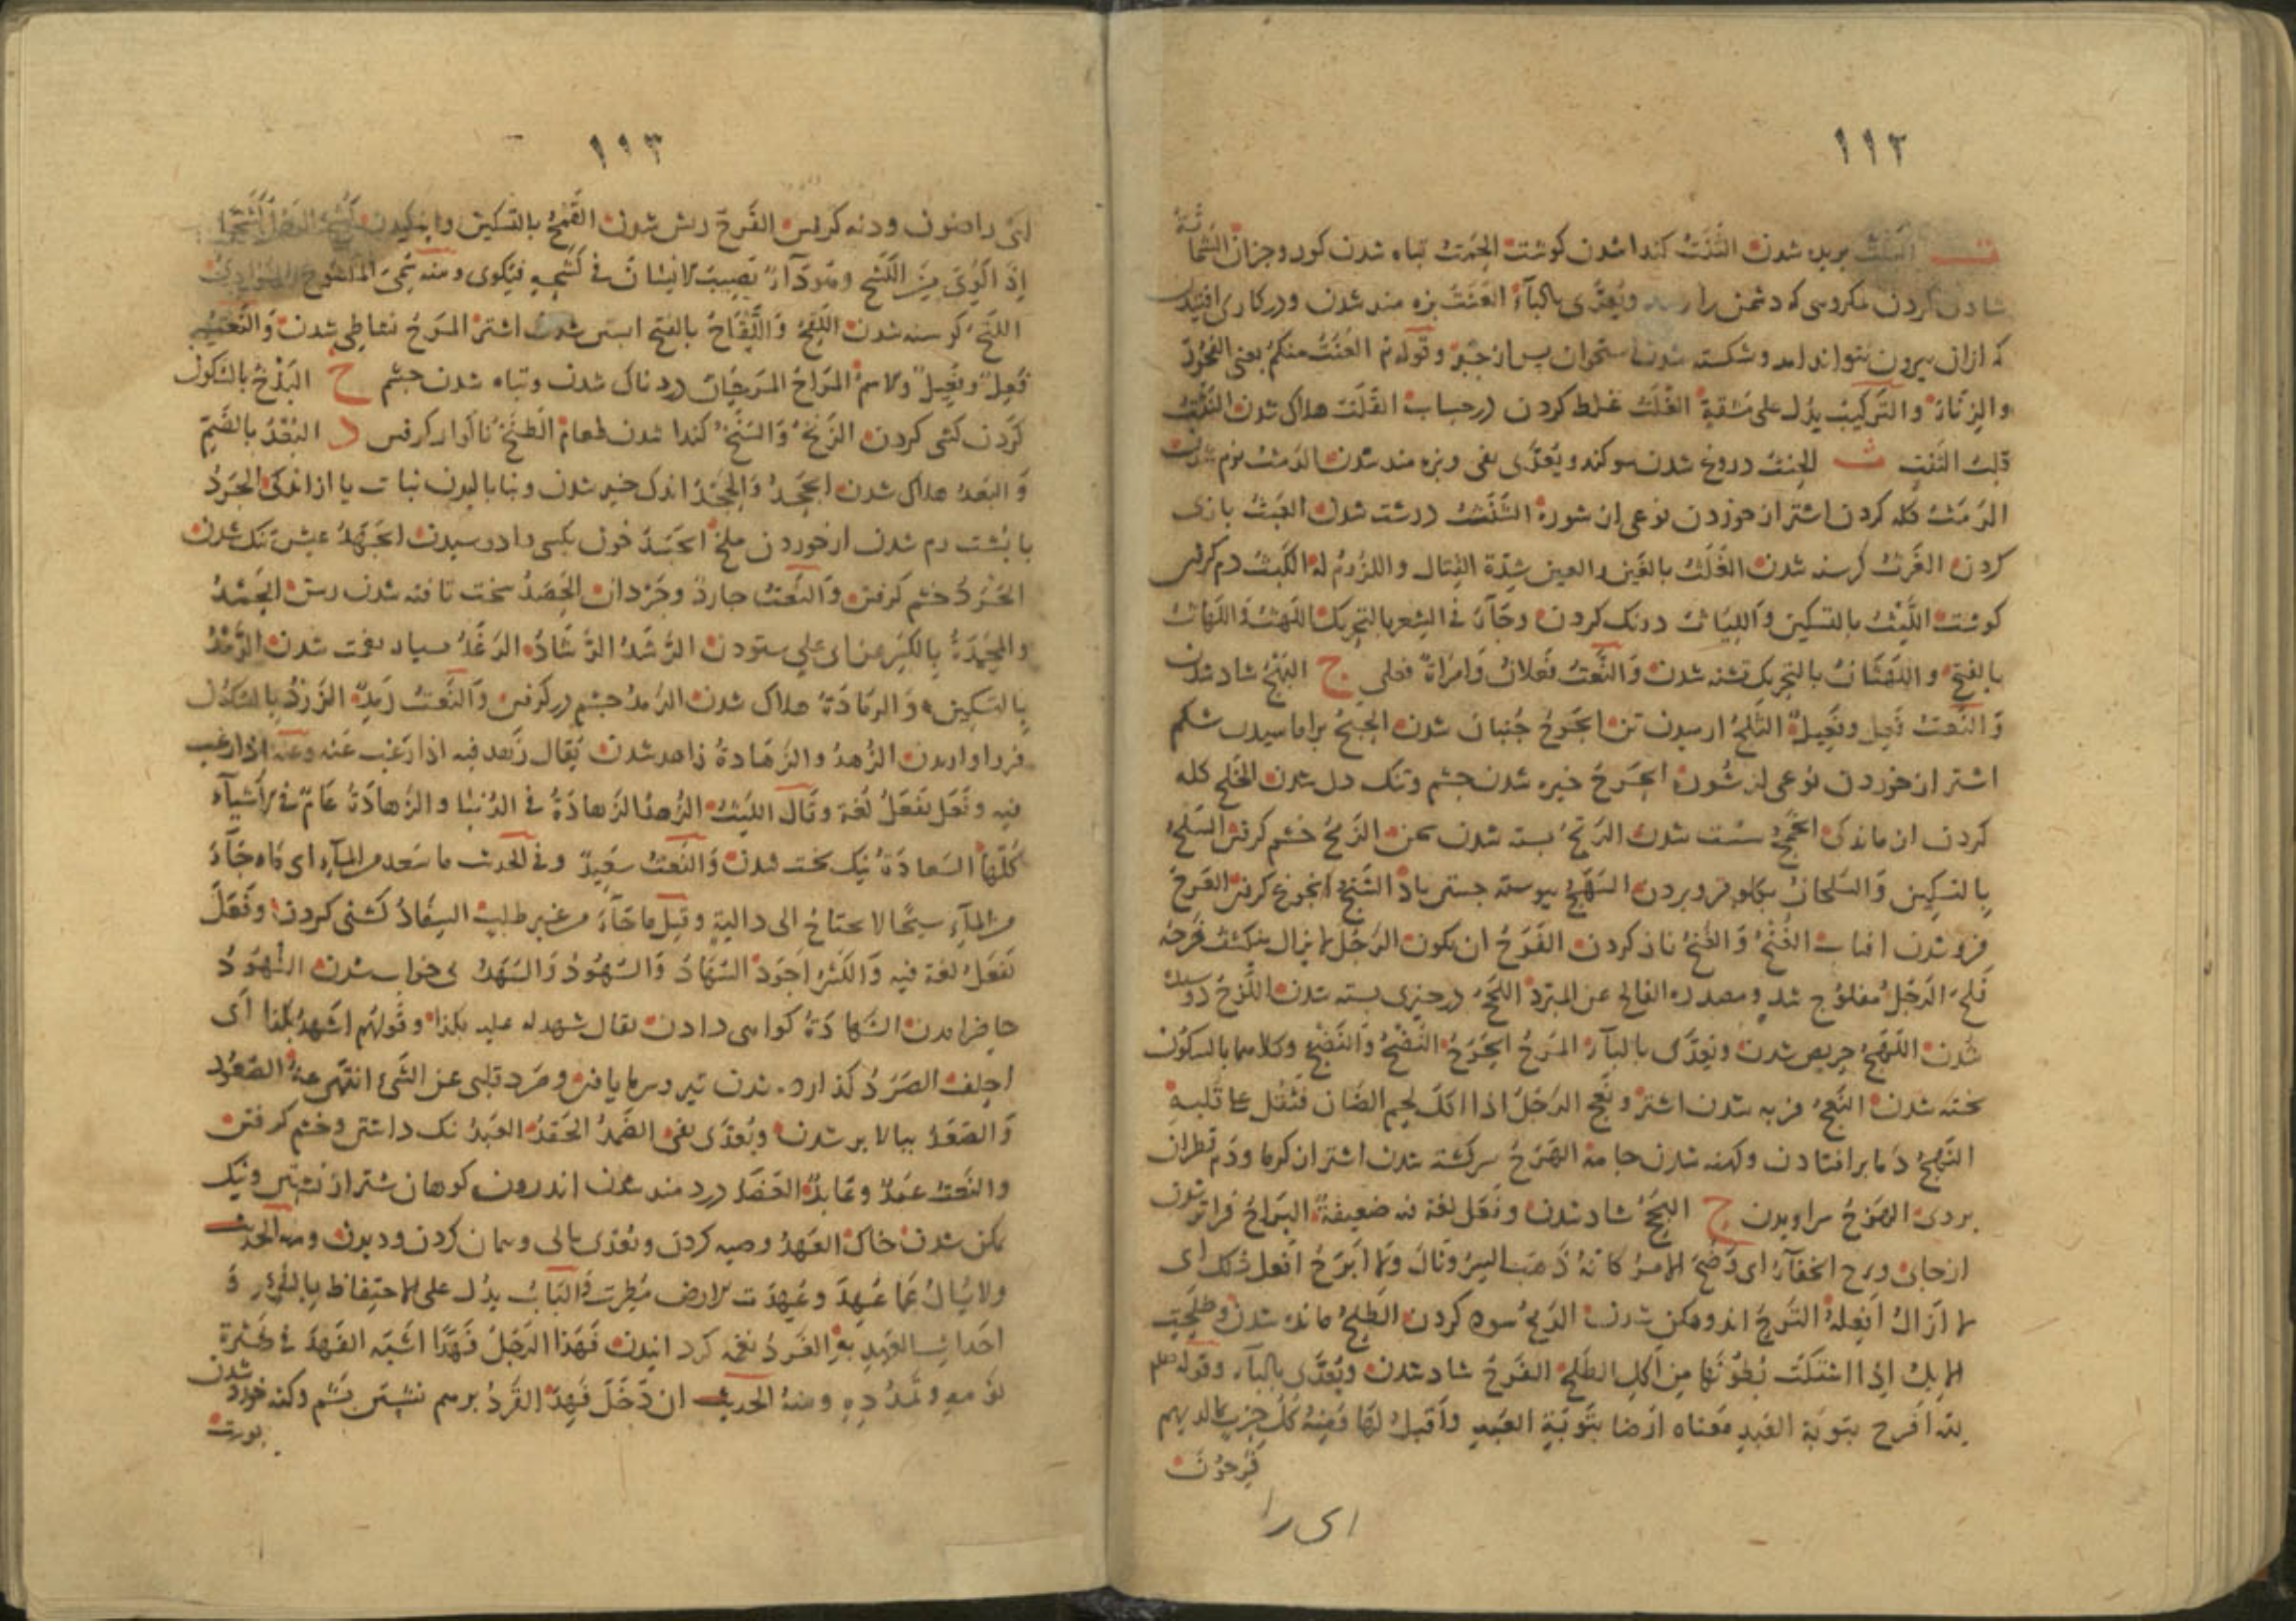 ١١٢
ت البَلَتُ بریده شدن الثَّنَتُ کندا شدن کوشت الحَمَتُ تباه شدن کوز و جزان الشَّما
تَةُ
شادی کردن بمکروهی که دشمن را رسد ویُعَدَّی بالبآء العَنَتُ بزه مند شدن و در کاری افتیدن
که ازان بیرون نتواند امد و شکسته شدن استخوان پس از جَبْر وقوله تم العَنَتُ منکم یعنی الفجور
والزِّنا والتّرکیبُ یدُلُّ علی مَشَقّةٍ الغَلَتُ غلط کردن در حساب القَلَتُ هلاک شدن
ث الحِنثُ دروغ شدن سوکند ویُعَدَّی بفی وبزه مند شدن الدَمَثُ نرم شدن
الرَمَثُ کله کردن اشتر از خوردن نوعی از شوره الشَّثَثُ درشت شدن العَبَثُ بازی
کردن الغَرَثُ کرسنه شدن الغَلَثُ بالغین والعین شِدّة القتال واللزوم له الکَبَثُ دم کرفتن
کوشت اللَّبْثُ بالتسکین واللَّبَاثُ درنک کردن وجآء فی الشِعر بالتحریک اللَهَثُ واللَهَاثُ
بالفتح واللَهَثَانُ بالتحریک تشنه شدن والنَّعتُ فَعلانُ وامرأة فعلی ج البَهَجُ شاد شدن
والنَّعتُ فَعِل وفَعِیل الثَّلَجُ ارمیدن تن الجَرَجُ جُنبان شدن الحَبَجُ براماسیدن شکم
اشتر از خوردن نوعی از شوره الحَرَجُ خیره شدن چشم وتنک دل شدن الخَلَجُ کله
کردن از ماندکی الخَمَجُ سست شدن الرَتَجُ بسته شدن سخن الزَمَجُ خشم کرفتن السَلْجُ
بالتسکین والسَلَجانُ بکلو فرو بردن السَهَجُ پیوسته جستن باد الشَنَجُ انجوغ کرفتن العَرَجُ
فرو شدن افتاب الغُنْجُ والغَنَجُ ناز کردن الفَرَجُ ان یکون الرَجُل لا یزال ینکشف فَرجُه
فَلِجَ الرَجُلُ مفلوج شد ومصدره الفالج عن المبرّد اللَحَجُ در چیزی بسته شدن اللَزَجُ دوسیدن
شدن اللَهَجُ حریص شدن ویُعَدَّی بالبآء المَرَجُ الجَرَجُ النُضْجُ والنَضْجُ وکلاهما بالسکون
پخته شدن النَعَجُ فربه شدن اشتر ونَعِجَ الرَجُلُ اذا اکل لحم الضان فثَقُل علی قلبه
النَهَجُ دما برافتادن وکهنه شدن جامه الهَرَجُ سرکشته شدن اشتر از کرما ودَم قطران
بروی الهَوَجُ ح البَجَحُ شاد شدن وفَعَلَ لغة فیه ضعیفة البَراحُ فراتر شدن
ازجای وبرح الخفآء ای وضح الامر کانه ذهب السِر وقال ولا ابرح افعل ذلک ای
لا ازال افعله التَرَحُ اندوهکن شدن الرَبَحُ سود کردن الطَلَحُ مانده شدن وطلحت
الابل اذا اشتکت بُطونَها من اکل الطلح الفَرَحُ شاد شدن ویُعَدَّی بالبآء وقوله صلعم
لله افرح بتوبة العبد معناه ارضا بتوبة العبد واقبل لها ومنه کل حزب بما لدیهم
فَرِحُون
ای را
١١٣
ای راضون ودنه کرفتن القَرَحُ ریش شدن القَمْحُ بالتسکین
اِذا کُوِیَ مِن الکَشَح وهو دآء یصیب الانسان فی کَشحه فیُکوی ومنه سُمّی المکشوح المرادی
اللَتَحُ کرسنه شدن اللَقَحُ واللَّقَاحُ بالفتح ابستن شدن اشتر المَرَحُ نشاطی شدن والنَّعتُ
فَعِل وفِعِّیل والاسمُ المِراحُ المَرَحانُ دردناک شدن وتباه شدن چشم خ البَذْخُ بالسکون
کردن کشی کردن الزَنَخُ والسَنَخُ کندا شدن طعام الطَنَخُ ناکوارد کرفتن د البُعْدُ بالضم
والبَعَدُ هلاک شدن الجَحَدُ والجَحْدُ اندک خیر شدن ونابالیدن نبات یا از اندکی الجَرَدُ
با پشت دم شدن از خوردن ملخ الجَسَدُ خون بکسی وادوسیدن الجَهَدُ عیش تنک شدن
الحَرَدُ خشم کرفتن والنَّعتُ حاردٌ وحَرْدان الحَصَدُ سخت تافته شدن رسن الحَمْدُ
والمَحْمِدَةُ بالکسر عن ابی علی ستودن الرَشَدُ الرَشَادُ الرَغَدُ بسیار نعمت شدن الرَمْدُ
بالتسکین والرَمَادَةُ هلاک شدن الرَمَدُ چشم درد کرفتن والنَّعتُ رَمِد الزَرْدُ بالسکون
فرو اواریدن الزُهدُ والزَهَادةُ زاهد شدن یُقال زَهِد فیه اذا رَغِب عنه وعنه اذا رغب
فیه وفَعَل یَفعَلُ لُغة وقال اللیث الزُهد والزَهادَةُ فی الدنیا والزَهادَةُ عامٌّ فی الاشیآء
کلّها السَعادَةُ نیک بخت شدن والنَّعتُ سَعِید وفی الحدیث ما سَعِد من المآء ای ماء جآء
من المآء سیحًا لا یحتاج الی دالیة وقیل ما جآء من غیر طلب السِفَادُ کشنی کردن وفَعَل
یَفعَلُ لغة فیه والکسر اجود السُهَادُ والسُهُودُ والسَهَدُ بی خواب شدن الشُهُودُ
حاضر امدن الشَهادَةُ کواهی دادن یقال شهد له علیه بکذا وقولُهم اشهدُ بکذا ای
احلف الصَرَدُ کذاره شدن تیر وسرما یافتن وصَرِد قلبی عن الشئ انتهی عنه الصُعُود
والصَعَدُ ببالا بر شدن ویُعَدَّی بفی الضَمَدُ الحَقَدُ العَبَدُ ننک داشتن وخشم کرفتن
والنَّعتُ عَبِد وعابد العَضَدُ دردمند شدن اندرون کوهان شتر از نشستن ونیک
تمکن شدن خاک العَهْدُ وصیه کردن ویُعَدَّی بالی وپیمان کردن ودیدن ومنه الحدیث
ولا یُسالُ عما عَهِدَ وعُهِدَت الارض مُطِرت والبابُ یدُل علی الاحتفاظ بالشئ و
احداث العهد به الغَرَدُ نغمه کردانیدن فَهِدَ الرَجُلُ فَهَدًا اشبه الفَهْدَ فی کثرة
نومه وتمدّده ومنه الحدیث ان دَخَلَ فَهِد القَرَدُ برهم نشستن پشم وکنه خورد شدن
پوست